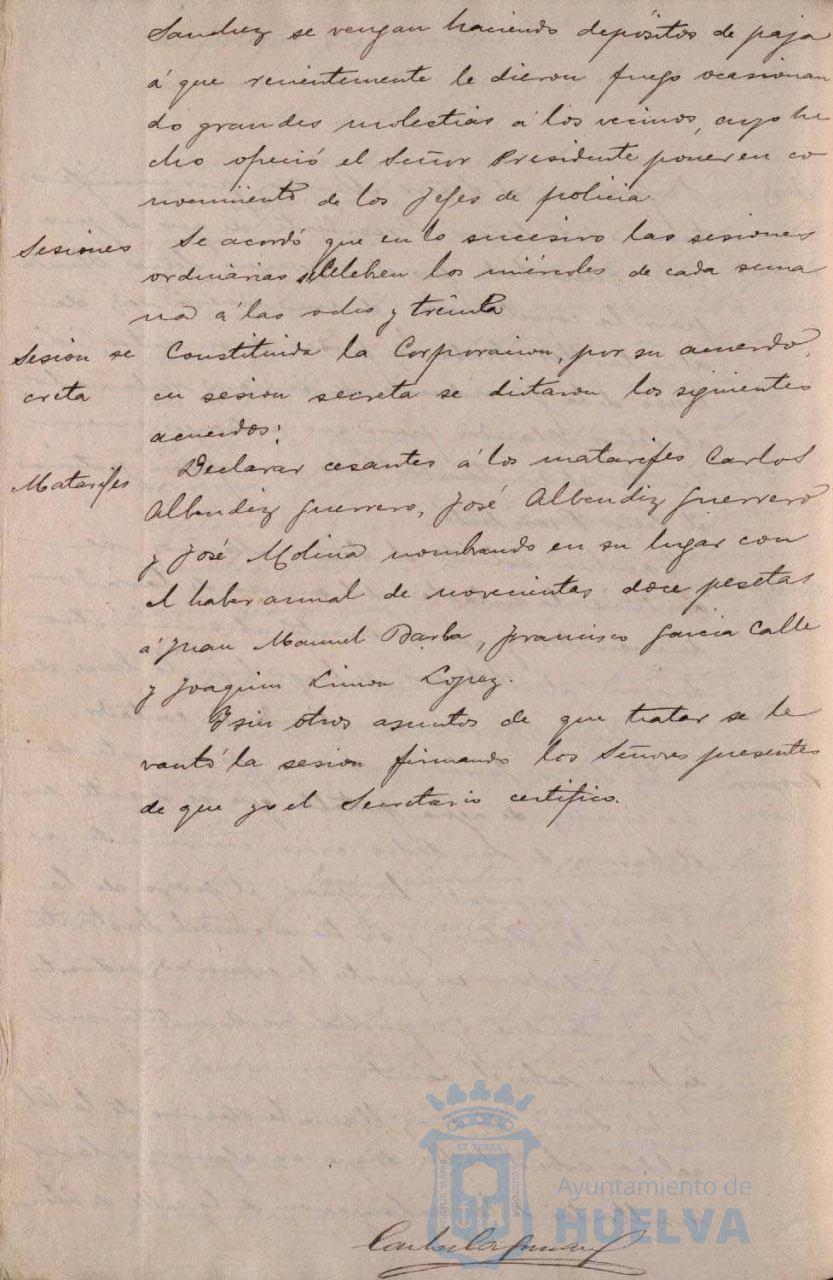 Sanchez se vengan haciendo depósitos de paja
á que recientemente le dieron fuego ocasionan
do grandes molestias á los vecinos, cuyo he
cho ofreció el Señor Presidente poner en co
nocimiento de los Jefes de policia.
Sesiones Se acordó que en lo sucesivo las sesiones
ordinarias se celebren los miércoles de cada sema
na á las ocho y treinta
Sesion se Constituida la Corporacion, por su acuerdo,
creta en sesion secreta se dictaron los siguientes
acuerdos:
Matarifes Declarar cesantes á los matarifes Carlos
Albendiz Guerrero, José Albendiz Guerrero
y José Molina nombrando en su lugar con
el haber annal de novecientas doce pesetas
á Juan Manuel Barba, Francisco Garcia Calle
y Joaquin Limon Lopez.
Y sin otros asuntos de que tratar se le
vantó la sesion firmando los Señores presentes
de que yo el Secretario certifico.
ET TERRÆ
PORTUS MARIS
CUSTODIA
Ayuntamiento de
HUELVA